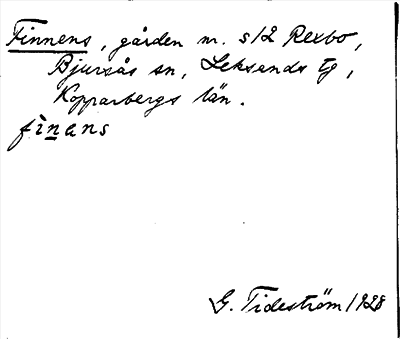 Finnens, gården nr. s/2 Rexbo,
Bjursås sn, Leksands tg,
Kopparbergs län.
fìnans
G. Tideström 1928